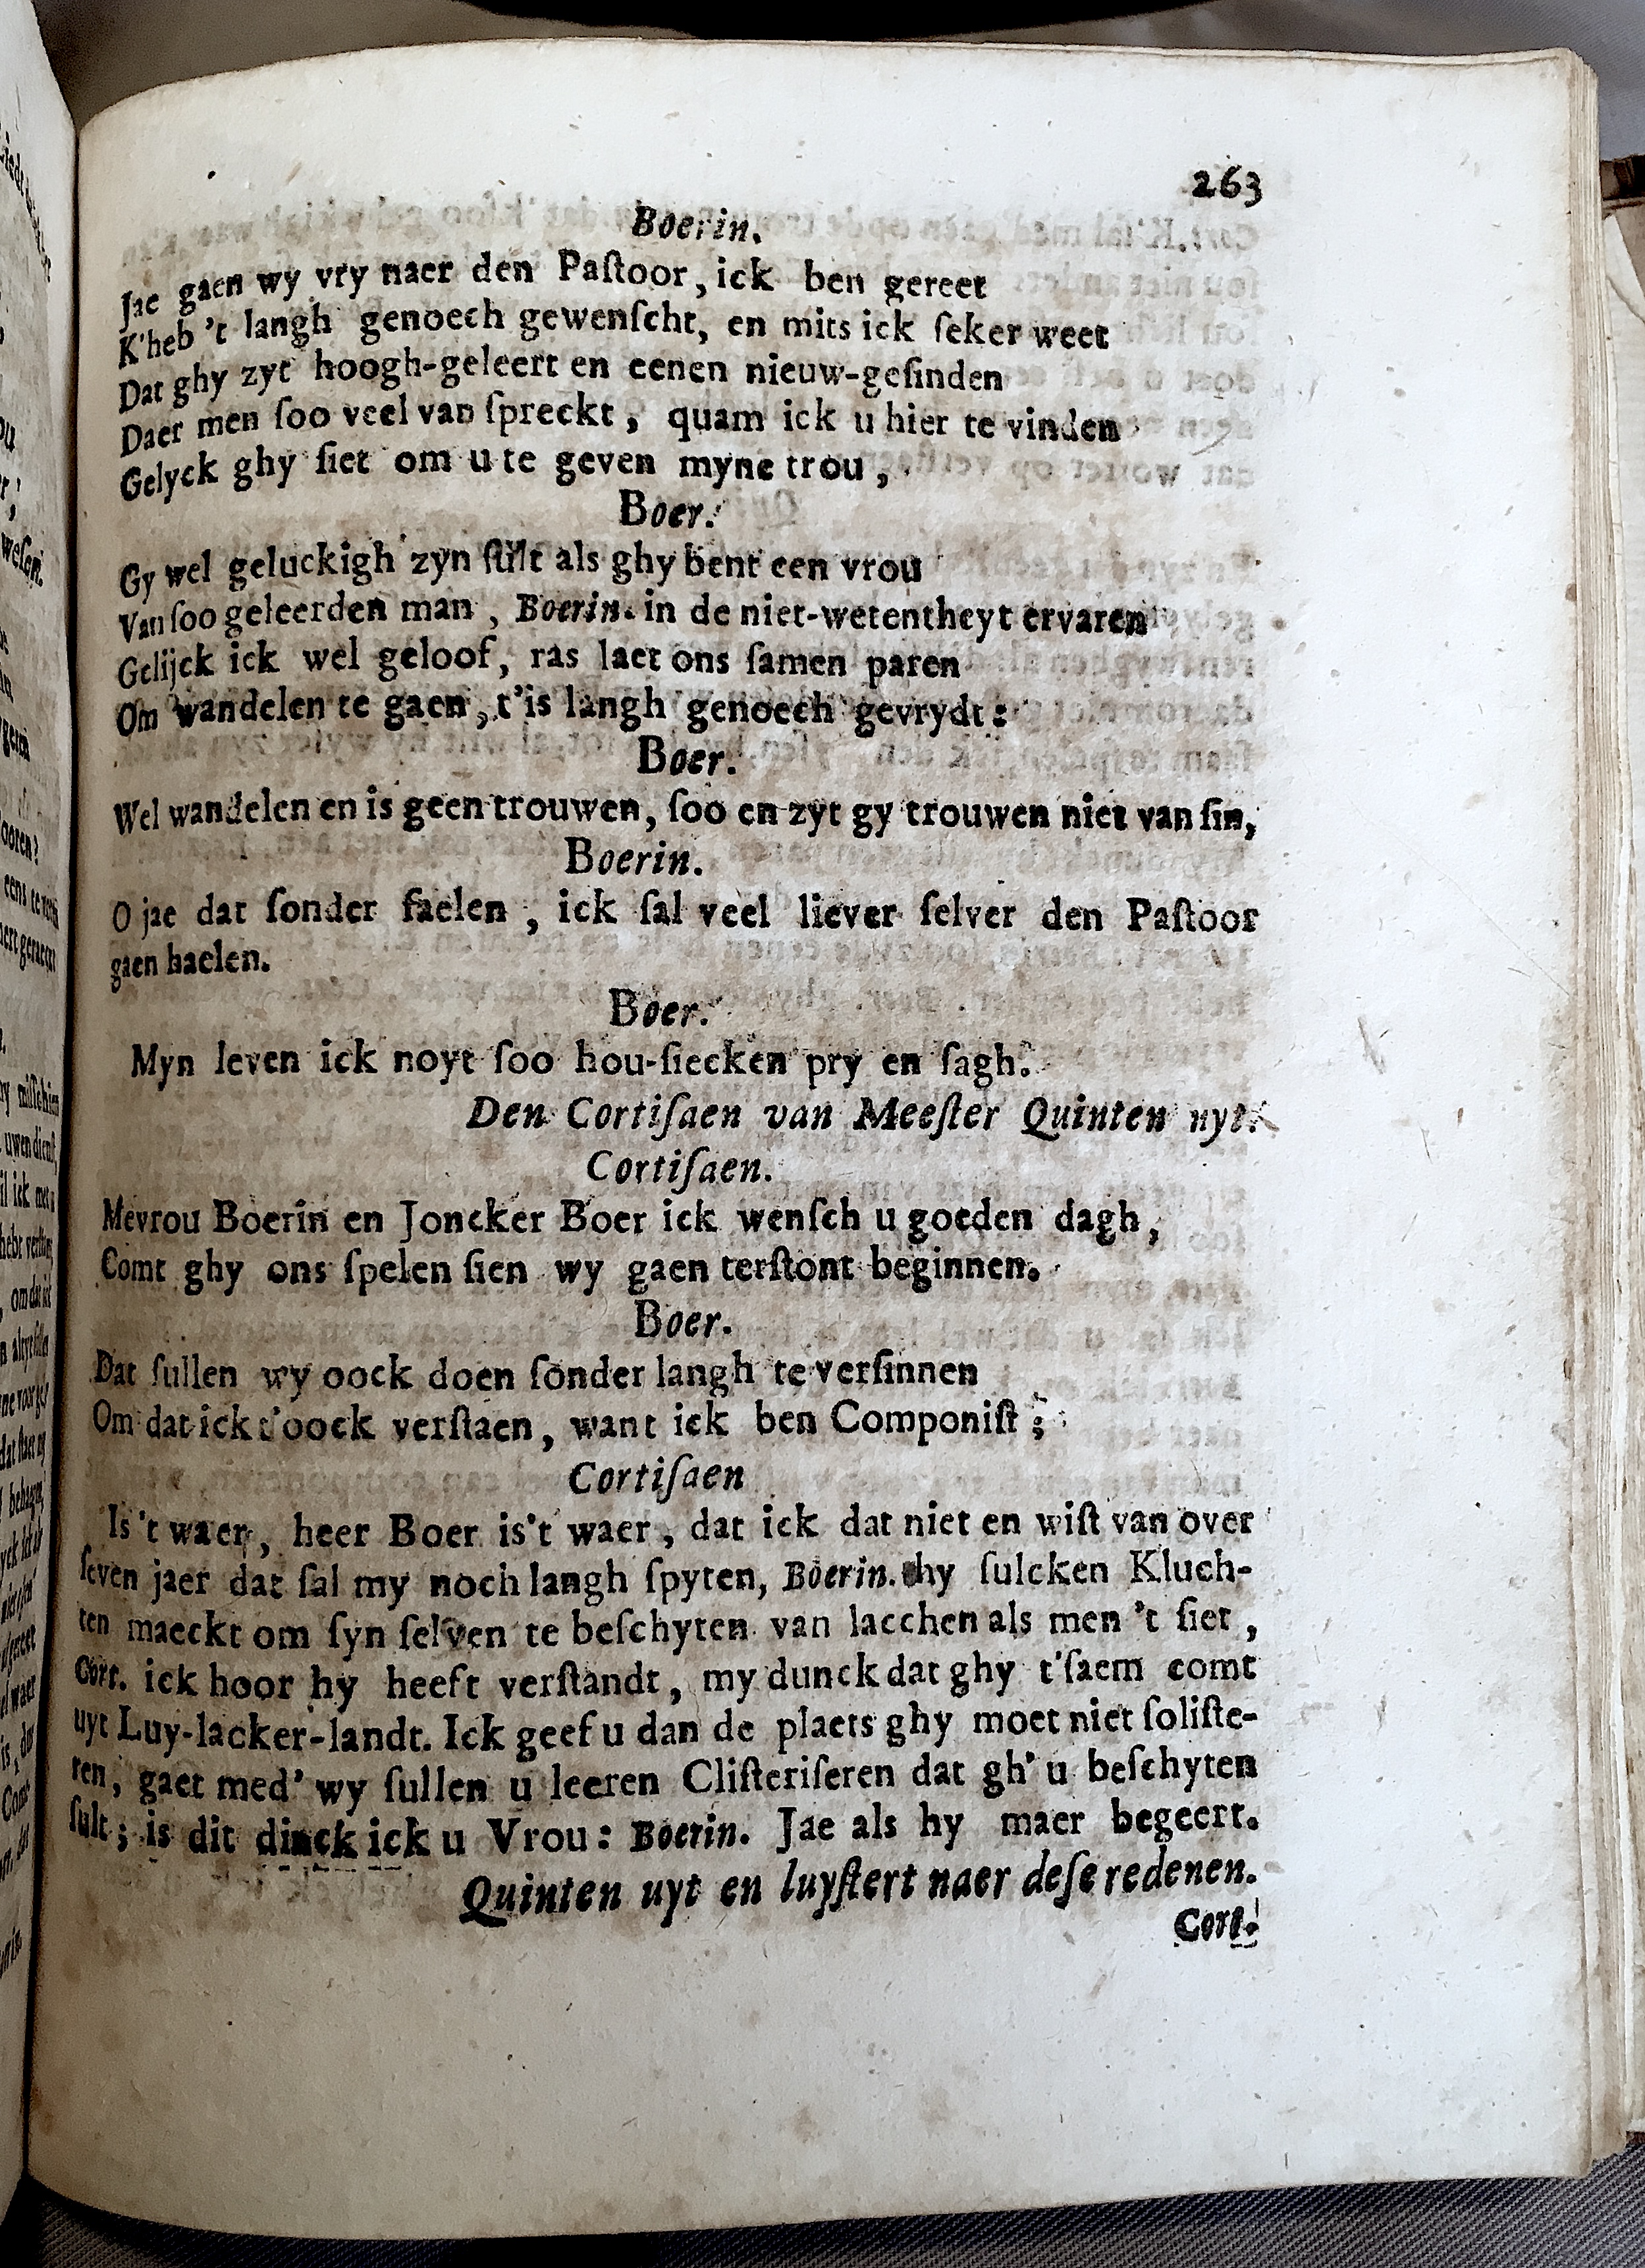 263
Boerin.
Jae gaen wy vry naer den Paſtoor, ick ben gereet
K'heb 't langh genoech gewenſcht, en mits ick ſeker weet
Dat ghy zyt hoogh-geleert en eenen nieuw-geſinden
Daer men ſoo veel van ſpreckt, quam ick u hier te vinden
Gelyck ghy ſiet om u te geven myne trou,
Boer.
Gy wel geluckigh zyn ſult als ghy bent een vrou
Van ſoo geleerden man, Boerin. in de niet-wetentheyt ervaren
Gelijck ick wel geloof, ras laet ons ſamen paren
Om wandelen te gaen, t'is langh genoech gevrydt:
Boer.
Wel wandelen en is geen trouwen, ſoo en zyt gy trouwen niet van ſin,
Boerin.
O jae dat ſonder faelen, ick ſal veel liever ſelver den Paſtoor
gaen haelen.
Boer.
Myn leven ick noyt ſoo hou-ſiecken pry en ſagh.
Den Cortiſaen van Meeſter Quinten nyt.
Cortiſaen.
Mevrou Boerin en Joncker Boer ick wenſch u goeden dagh,
Comt ghy ons ſpelen ſien wy gaen terſtont beginnen.
Boer.
Dat ſullen wy oock doen ſonder langh te verſinnen
Om dat ick t'oock verſtaen, want ick ben Componiſt;
Cortiſaen
Is 't waer, heer Boer is't waer, dat ick dat niet en wiſt van over
ſeven jaer dat ſal my noch langh ſpyten, Boerin. hy ſulcken Kluch-
ten maeckt om ſyn ſelven te beſchyten van lacchen als men 't ſiet,
Cort. ick hoor hy heeft verſtandt, my dunck dat ghy t'ſaem comt
uyt Luy-lacker-landt. Ick geef u dan de plaets ghy moet niet ſoliſte-
ren, gaet med' wy ſullen u leeren Cliſteriſeren dat gh' u beſchyten
ſult; is dit dinck ick u Vrou: Boerin. Jae als hy maer begeert.
Quinten uyt en luyſtert naer deſe redenen.
Cort.